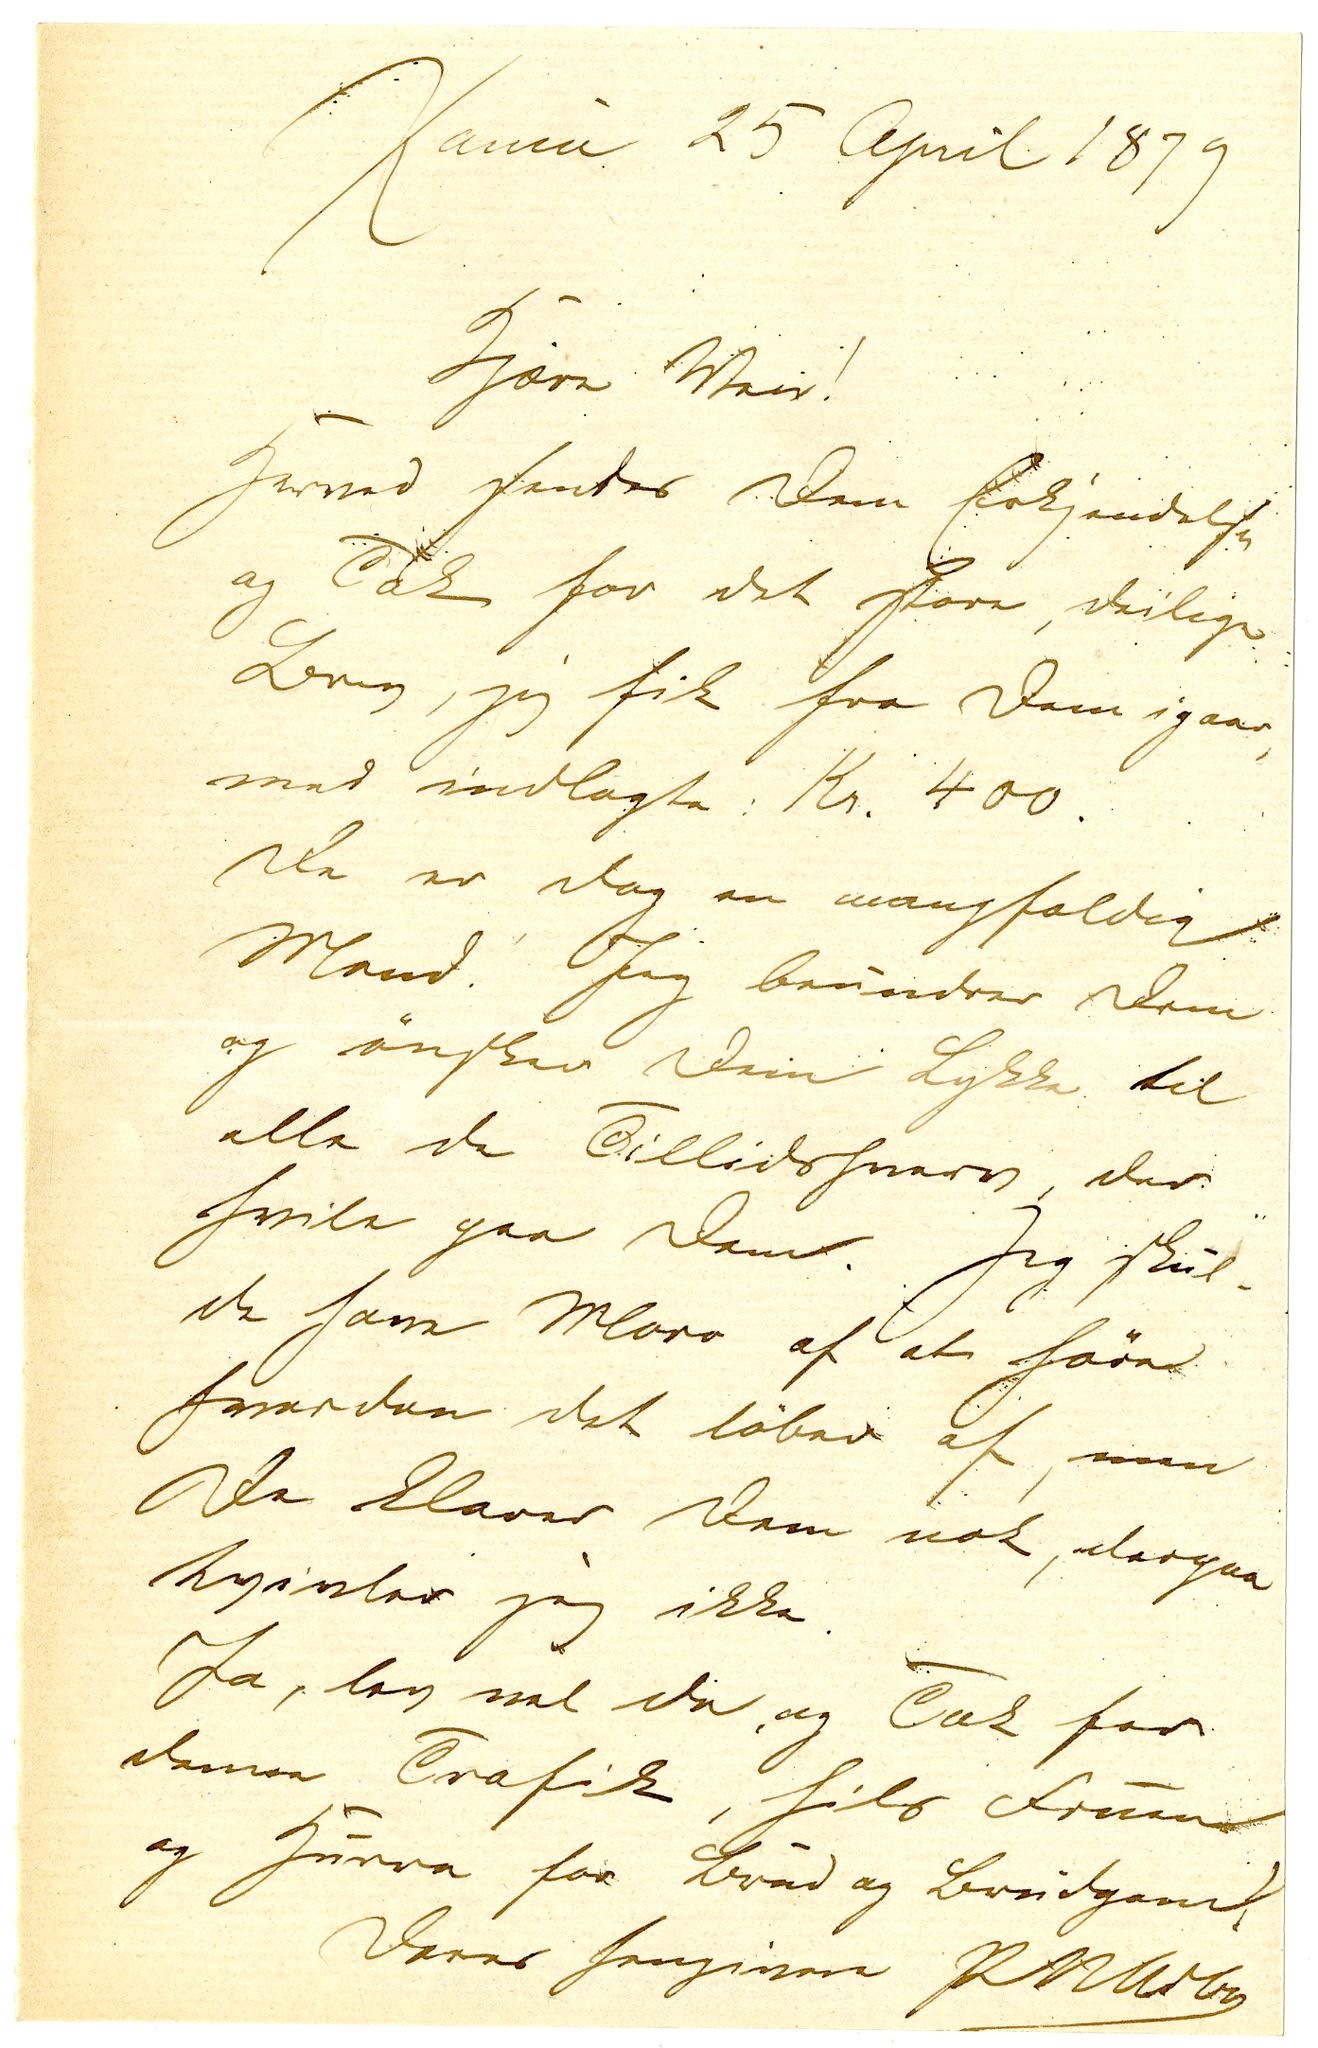 Xania 25 April 1879
Kjære Weis!
Herved sendes Dem Erkjendelse
og Tak for det store, deilige
Brev, jeg fik fra Dem igaar,
med indlagte: Kr. 400.
De er dog en mangfoldig
Mand! Jeg beundrer Dem
og önsker Dem Lykke til
alle de Tillidshverv, der
hvile paa Dem. Jeg skul-
de have Moro af at höre
hvordan det löber af, men
De klarer Dem nok, derpaa
tvivler jeg ikke.
Ja, lev vel da og Tak for
denne Trafik, hils Fruen
og Hurra for Brud og Brudgom!
Deres hengivne